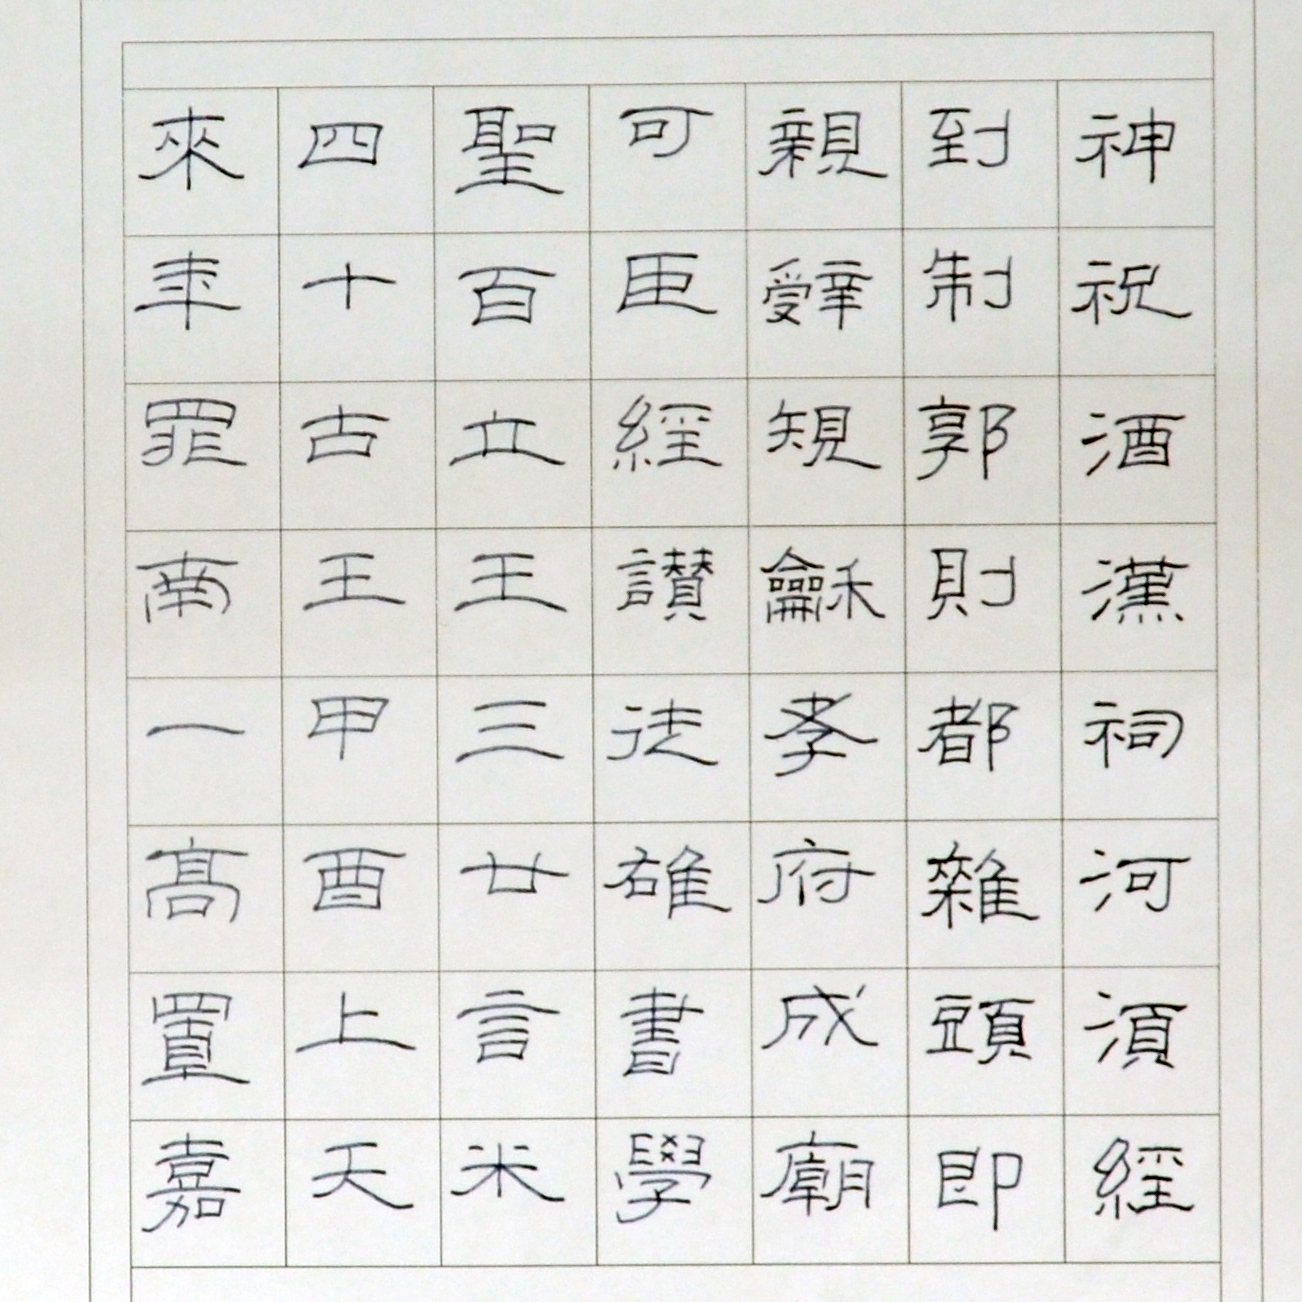 神祝酒漢祠河須經
到制郭則都雜頭即
親辤規龢孝府成廟
可臣經讃徒雄書學
聖百立王三廿言米
四十古王甲酉上天
來年罪南一髙置嘉